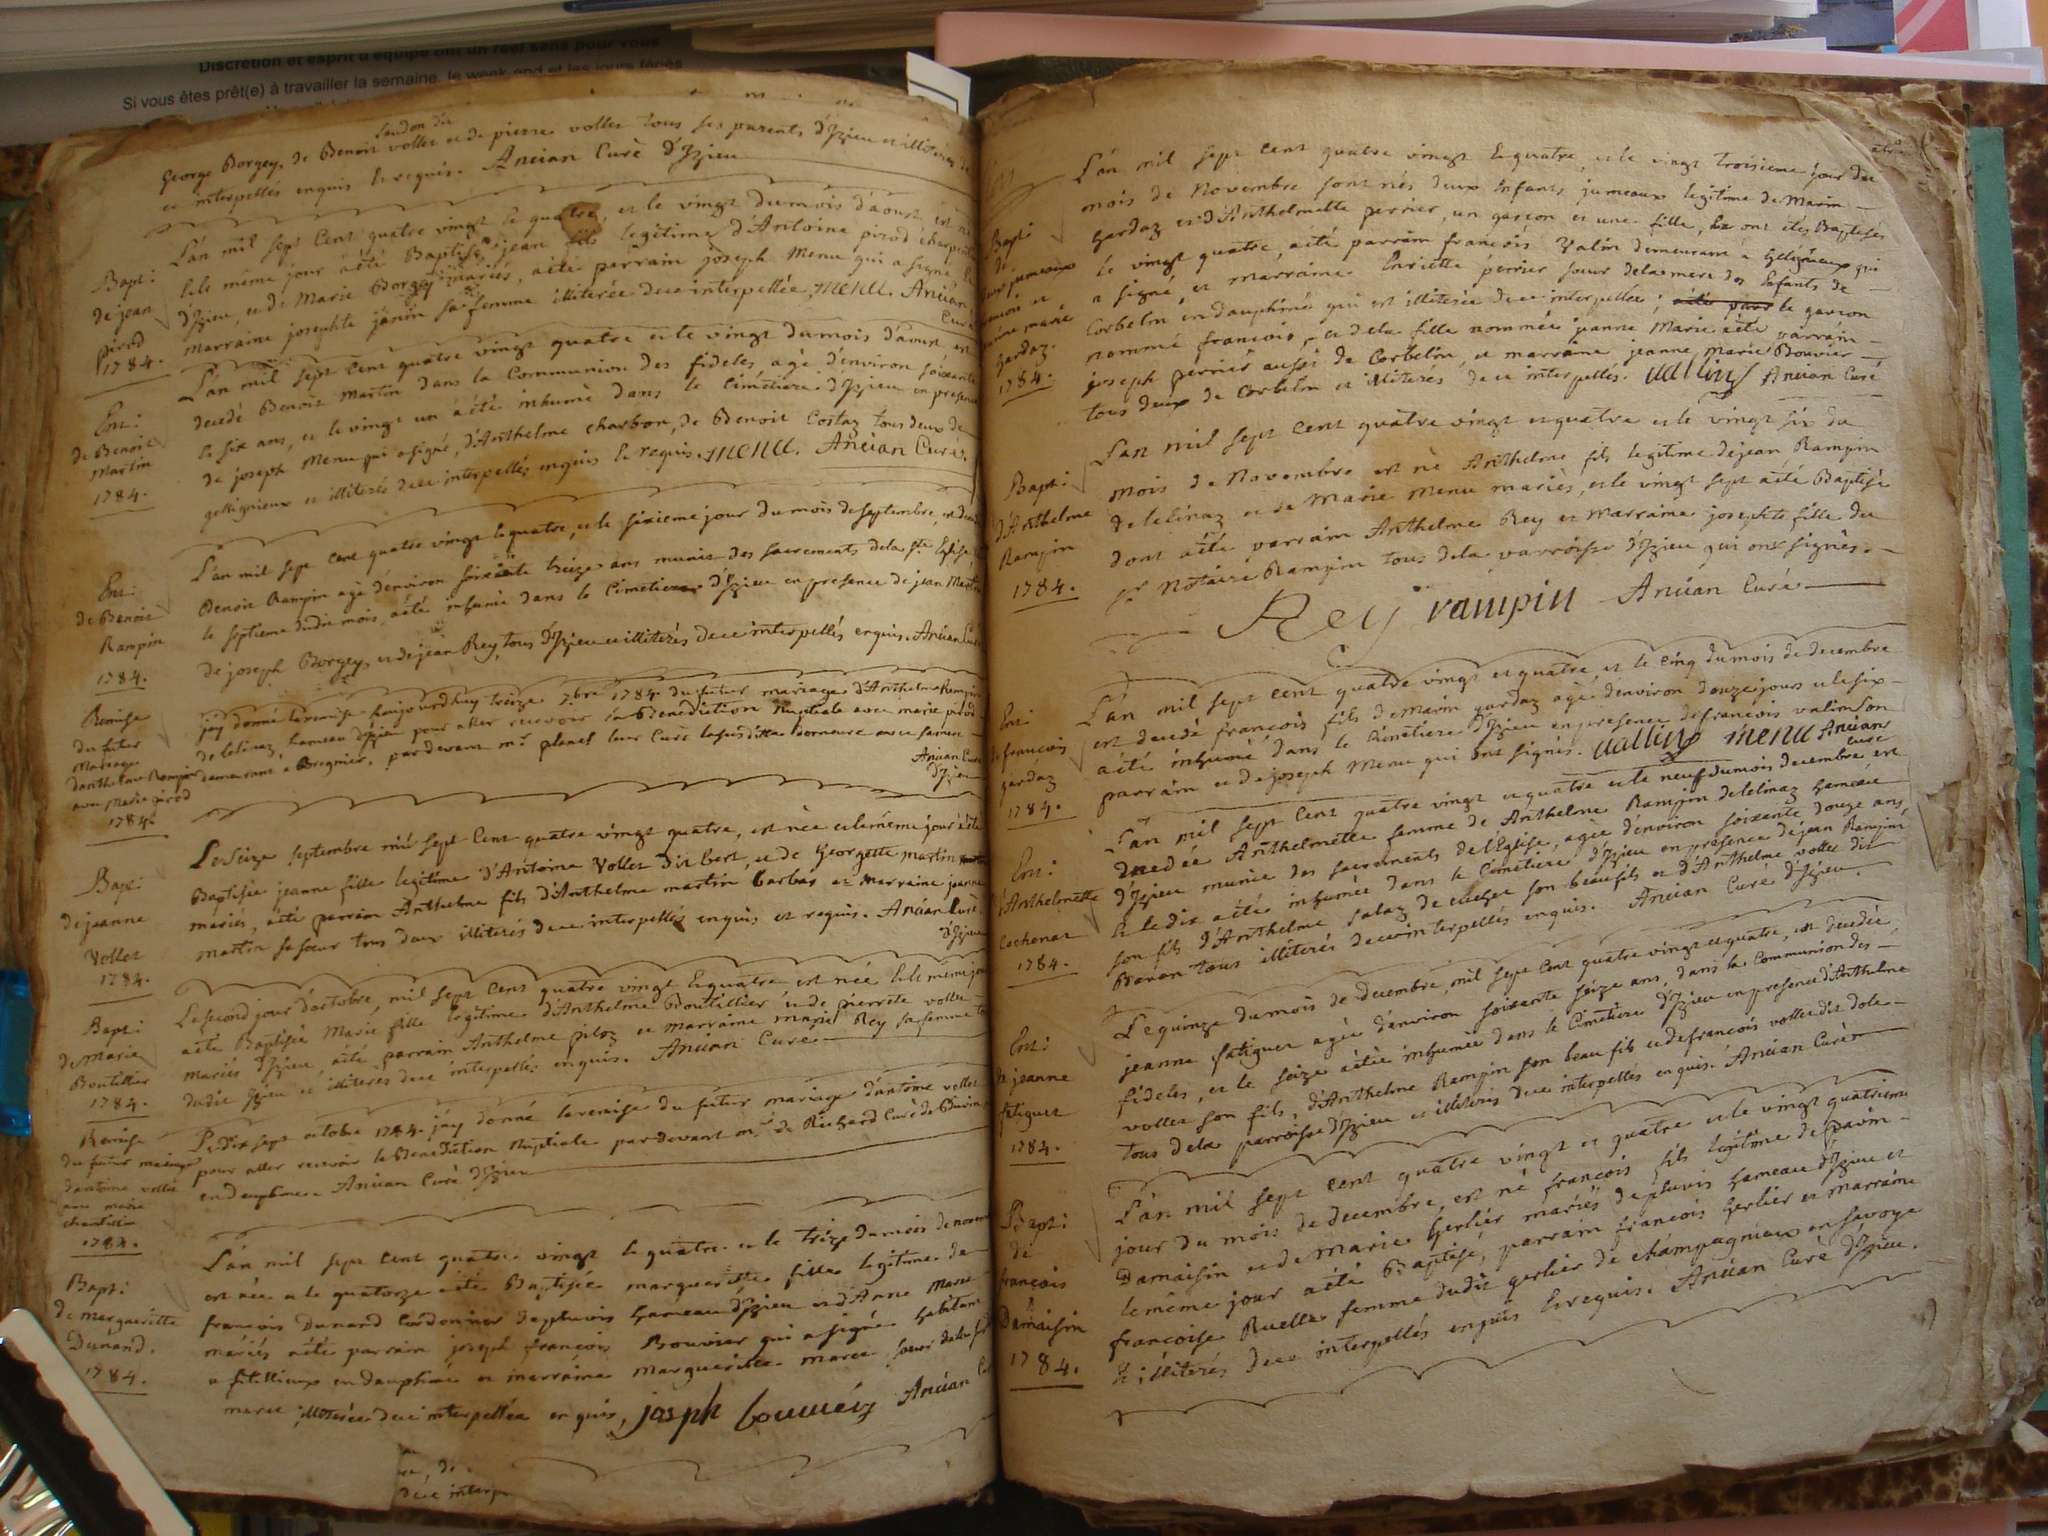 Discrétion et esprit d'équipe ont un réel sens pour vous
Si vous êtes prêt(e) à travailler la semaine, le week-end et les jours fériés
George Borgey, de Benoit vollet et de pierre vollet tous ses parents d'Izieu et illiterés de
ce interpellés enquis et requis. Ancian Curé d'Izieu
Bapt:
de jean
pirod
1784.
L'an mil sept cent quatre vingt et quatre, et le vingt du mois d'aoust est né
et le même jour a été Baptisé jean fils legitime d'Antoine pirod charpentier
d'Izieu, et de Marie Borgey mariés, a été parrain joseph Menu qui a signé, et
marraine josephte janin sa femme illiterée de ce interpellée, menu. Ancian
Curé
Ent:
de Benoit
Martin
1784.
L'an mil sept cent quatre vingt quatre et le vingt du mois d'aoust est
decedé Benoit Martin dans la Communion des fideles, agé d'environ soixante
et six ans, et le vingt un a été inhumé dans le cimetiere d'Izieu en presence
de joseph Menu qui a signé, d'Anthelme charbon, de Benoit Costaz tous deux de
gelignieux et illiterés de ce interpellés enquis et requis. menu. Ancian Curé.
Ent:
de Benoit
Rampin
1784.
L'an mil sept cent quatre vingt et quatre, et le sixieme jour du mois de septembre, est decedé
Benoit Rampin agé d'environ soixante treize ans munis des sacrements de la Ste Eglise, et
le septieme dudit mois, a été inhumé dans le Cimetiere d'Izieu en presence de jean Martin
de joseph Borgey, et de jean Rey, tous d'Izieu et illiterés de ce interpellés enquis. Ancian Curé
Remise
du futur
Mariage
d'anthelme Rampin
avec Marie pirod
1784.
j'ay donné la remise haujourdhuy treize 7bre 1784. du futur mariage d'Anthelme Rampin
de lelinaz, hameau d'Izieu pour aller recevoir la Benediction Nuptiale avec marie pirod
demeurant a Bregnier, pardevant mr planet leur Curé
Ancian Curé
d'Izieu
Bapt:
de jeanne
Vollet
1784.
Le seize septembre mil sept cent quatre vingt quatre, est née et le même jour a été
Baptisée jeanne fille legitime d'Antoine Vollet dit bert, et de Georgette martin
mariés, a été parrain Anthelme fils d'Anthelme martin barbas et marraine jeanne
martin sa soeur tous deux illiterés de ce interpellés enquis et requis. Ancian Curé
d'Izieu
Bapt:
de Marie
Boutillier
1784.
Le second jour d'octobre, mil sept cent quatre vingt et quatre est née et le même jour
a été Baptisée Marie fille legitime d'Anthelme Boutillier et de pierrete vollet
mariés d'Izieu, a été parrain Anthelme piloz et marraine marie Rey sa femme
dudit Izieu et illiterés de ce interpellés enquis. Ancian Curé
Remise
du futur mariage
d'antoine vollet
avec marie
1784.
Le Dix sept octobre 1784. j'ay donné la remise du futur mariage d'antoine vollet
pour aller recevoir la Benediction Nuptiale pardevant mr de Richard Curé de
en dauphiné. Ancian Curé d'Izieu
Bapt:
de margueritte
Dunand.
1784.
L'an mil sept cent quatre vingt et quatre et le treize du mois de novembre
est née et le quatorze a été Baptisée margueritte fille legitime de
francois Dunand Cordonnier de pluvis hameau d'Izieu et d'Anne Marce
mariés a été parrain joseph francois Bouvier qui a signé habitant
a filillieux en dauphiné et marraine margueritte marce soeur de
marce illiterée de ce interpellée enquis, joseph bouvier Ancian Curé
de ce interp
Bapt:
de
deux jumeaux
francois et
jeanne marie
Gardaz.
1784.
L'an mil sept cent quatre vingt et quatre, et le vingt troisieme jour du
mois de Novembre sont nés deux Enfants jumeaux legitime de Marin
Gardaz et d'Anthelmette perrier, un garcon et une fille, ont étés Baptisés
le vingt quatre, a été parrain francois Valin demeurant a Gelignieux qui
a signé, et marraine Enriette perrier soeur de la mere des Enfants de
Corbelin en dauphiné qui est illiterée de ce interpellée; le garcon
nommé francois, et de la fille nommée jeanne Marie a été parrain
joseph perrier aussi de Corbelin, et marraine jeanne Marie Bouvier
tous deux de Corbelin et illiterés de ce interpellés. vallin Ancian Curé
Bapt:
d'Anthelme
Rampin
1784.
L'an mil sept cent quatre vingt et quatre et le vingt six du
mois de Novembre est né Anthelme fils legitime de jean Rampin
de lelinaz et de Marie Menu mariés, et le vingt sept a été Baptisé
dont a été parrain Anthelme Rey et Marraine josephte fille du
Sr Notaire Rampin tous de la parroisse d'Izieu qui ont signés.
Rey rampin Ancian Curé
Ent:
de francois
gardaz
1784.
L'an mil sept cent quatre vingt et quatre, et le cinq du mois de decembre
est decedé francois fils de Marin gardaz agé d'environ douze jours et le six
a été inhumé dans le Cimetiere d'Izieu en presence de francois valin son
parrain et de joseph Menu qui ont signés. vallin menu Ancian
Curé
Ent:
d'Anthelmette
Cochonat
1784.
L'an mil sept cent quatre vingt et quatre et le neuf du mois decembre est
decedée Anthelmette femme de Anthelme Rampin de lelinaz hameau
d'Izieu munie des sacrements de l'Eglise, agée d'environ soixante douze ans,
et le dix a été inhumée dans le Cimetiere d'Izieu en presence de jean Rampin
son fils d'Anthelme salaz de cuchet son beaufils et d'Anthelme vollet dit
Baran tous illiterés de ce interpellés enquis. Ancian Curé d'Izieu.
Ent:
de jeanne
fatiguet
1784.
Le quinze du mois de decembre, mil sept cent quatre vingt et quatre, est decedée
jeanne fatiguet agée d'environ soixante seize ans, dans la Communion des
fideles, et le seize a étée inhumée dans le Cimetiere d'Izieu en presence d'Anthelme
vollet son fils, d'Anthelme Rampin son beau fils et de francois vollet dit dole
tous de la parroisse d'Izieu et illiterés de ce interpellés enquis. Ancian Curé
Bapt:
de
francois
Damaisin
1784.
L'an mil sept cent quatre vingt et quatre et le vingt quatrieme
jour du mois de decembre, est né francois fils legitime de pavin
Damaisin et de Marie Gerlier mariés de pluvis hameau d'Izieu et
le même jour a été Baptisé, parrain francois Gerlier et marraine
francoise Ruelle femme dudit gerlier de champagnieux en savoye
et illiterés de ce interpellés enquis et requis. Ancian Curé d'Izieu.